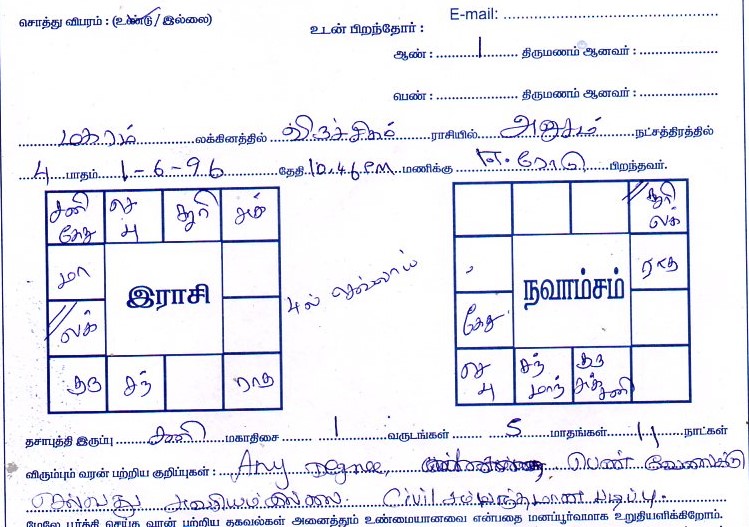 சொத்து விபரம் : (உண்டு / இல்லை)
E-mail:
உடன் பிறந்தோர் :
ஆண் : 1 திருமணம் ஆனவர் :
பெண் : திருமணம் ஆனவர் :
மகரம் லக்கினத்தில் விருச்சிகம் ராசியில் அனுசம் நட்சத்திரத்தில்
4 பாதம் 1-6-96 தேதி 10.46 PM மணிக்கு ஈ.ரோடு பிறந்தவர்.
சனி கேது
செ பு
சூரி
மா
லக்
குரு
சந்
ராகு
இராசி
4ல் செவ்வாய்
சூரி லக்
ராகு
கேது
செ பு
சந் மாந்
குரு சனி
நவாம்சம்
தசாபுத்தி இருப்பு சனி மகாதிசை 1 வருடங்கள் 5 மாதங்கள் 11 நாட்கள்
விரும்பும் வரன் பற்றிய குறிப்புகள் : Any Degree, பெண் வேலைக்கு
செல்வது அவசியமில்லை. Civil சம்மந்தமான படிப்பு.
மேலே பூர்த்தி செய்த வரன் பற்றிய தகவல்கள் அனைத்தும் உண்மையானவை என்பதை மனப்பூர்வமாக உறுதியளிக்கிறோம்.